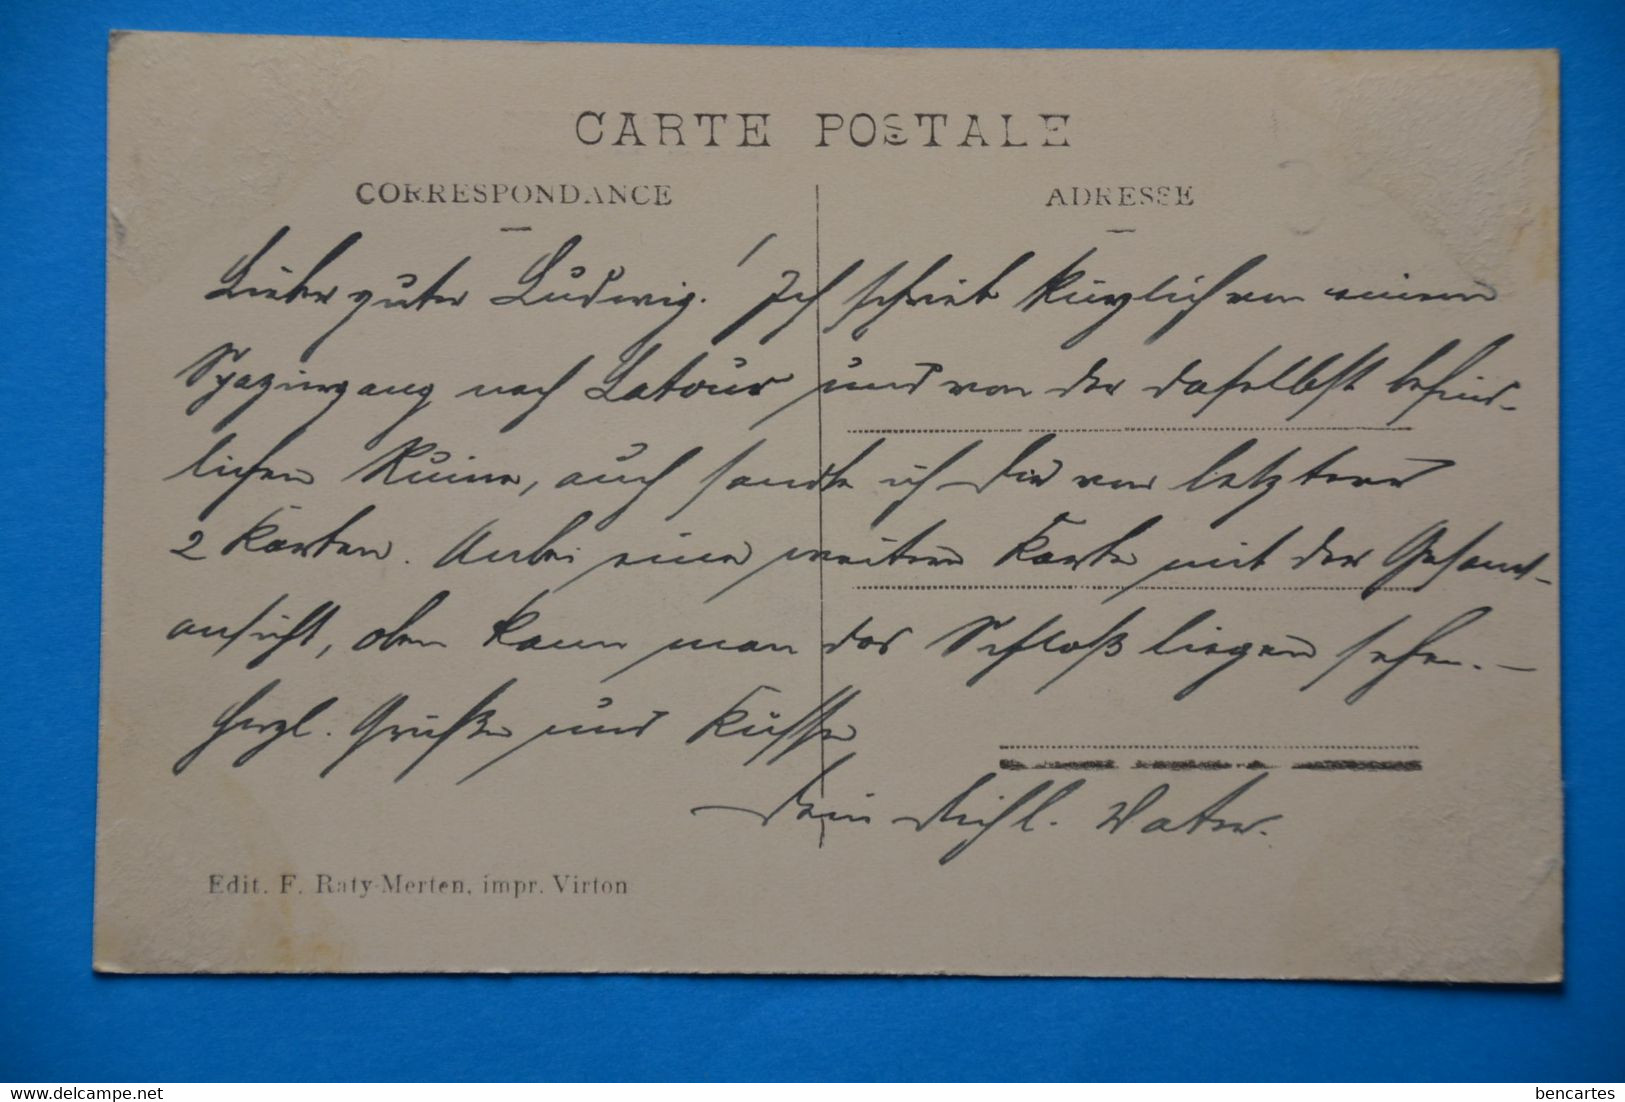 CARTE POSTALE
CORRESPONDANCE
ADRESSE
Lieber guter Ludwig! Ich schrieb kürzlich von einem
Spaziergang nach Latour und von der daselbst befind-
lichen Ruine, auch sandte ich Dir von letzterer
2 Karten. Anbei eine weitere Karte mit der Gesamt-
ansicht, oben kann man das Schloß liegen sehen. –
Herzl. Grüße und Küsse
Dein Vater.
Edit. F. Raty-Merten, impr. Virton
delcampe.net
bencartes